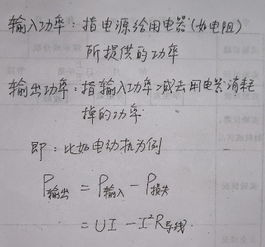 输入功率：指电源给用电器(如电阻)
所提供的功率
输出功率：指输入功率减去用电器消耗
掉的功率
即：比如电动机为例
P输出 = P输入 - P损失
= UI - I²R导线